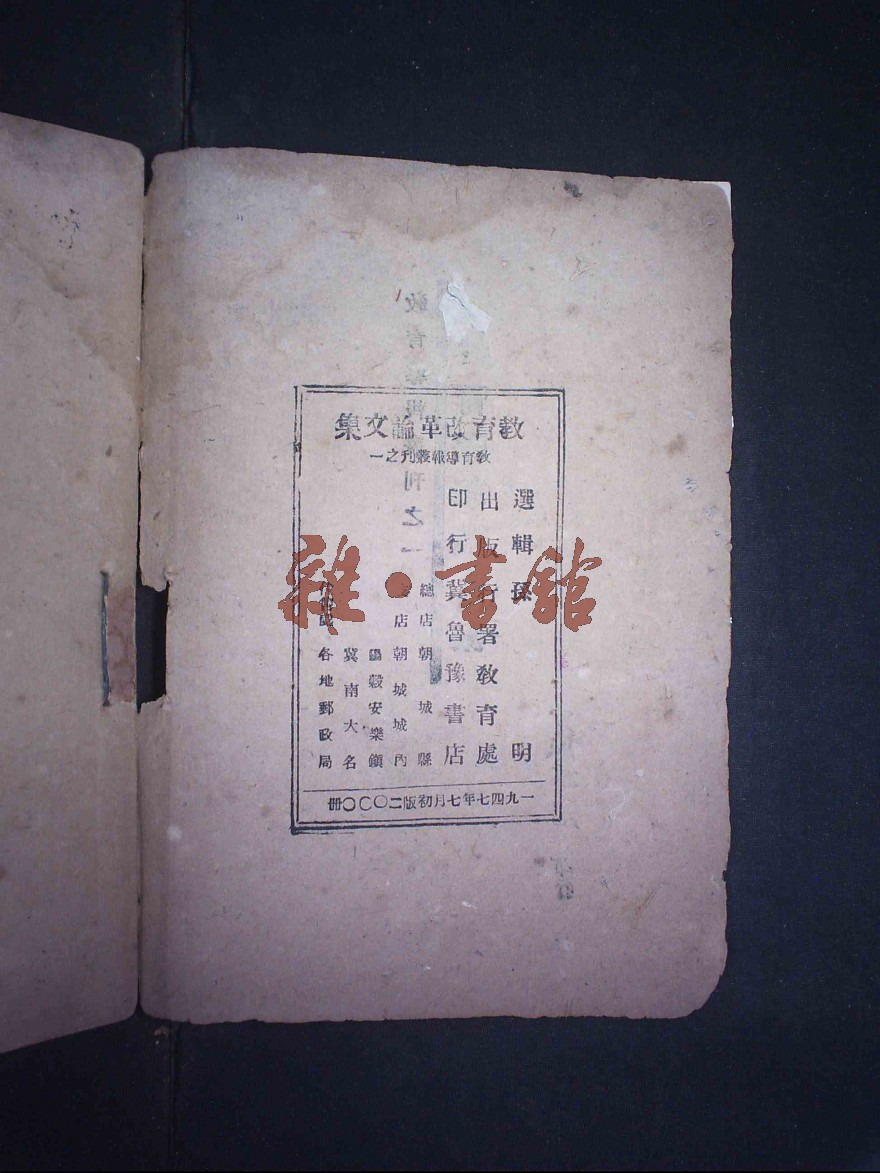 教育改革論文集
教育導報叢刊之一
選輯 孫 明
出版 行署教育處
印行 冀魯豫書店
總店 朝城縣
店 朝城城內
陽穀安樂鎮
冀南大名
各地郵政局
一九四七年七月初版二〇〇〇冊
雜·書館